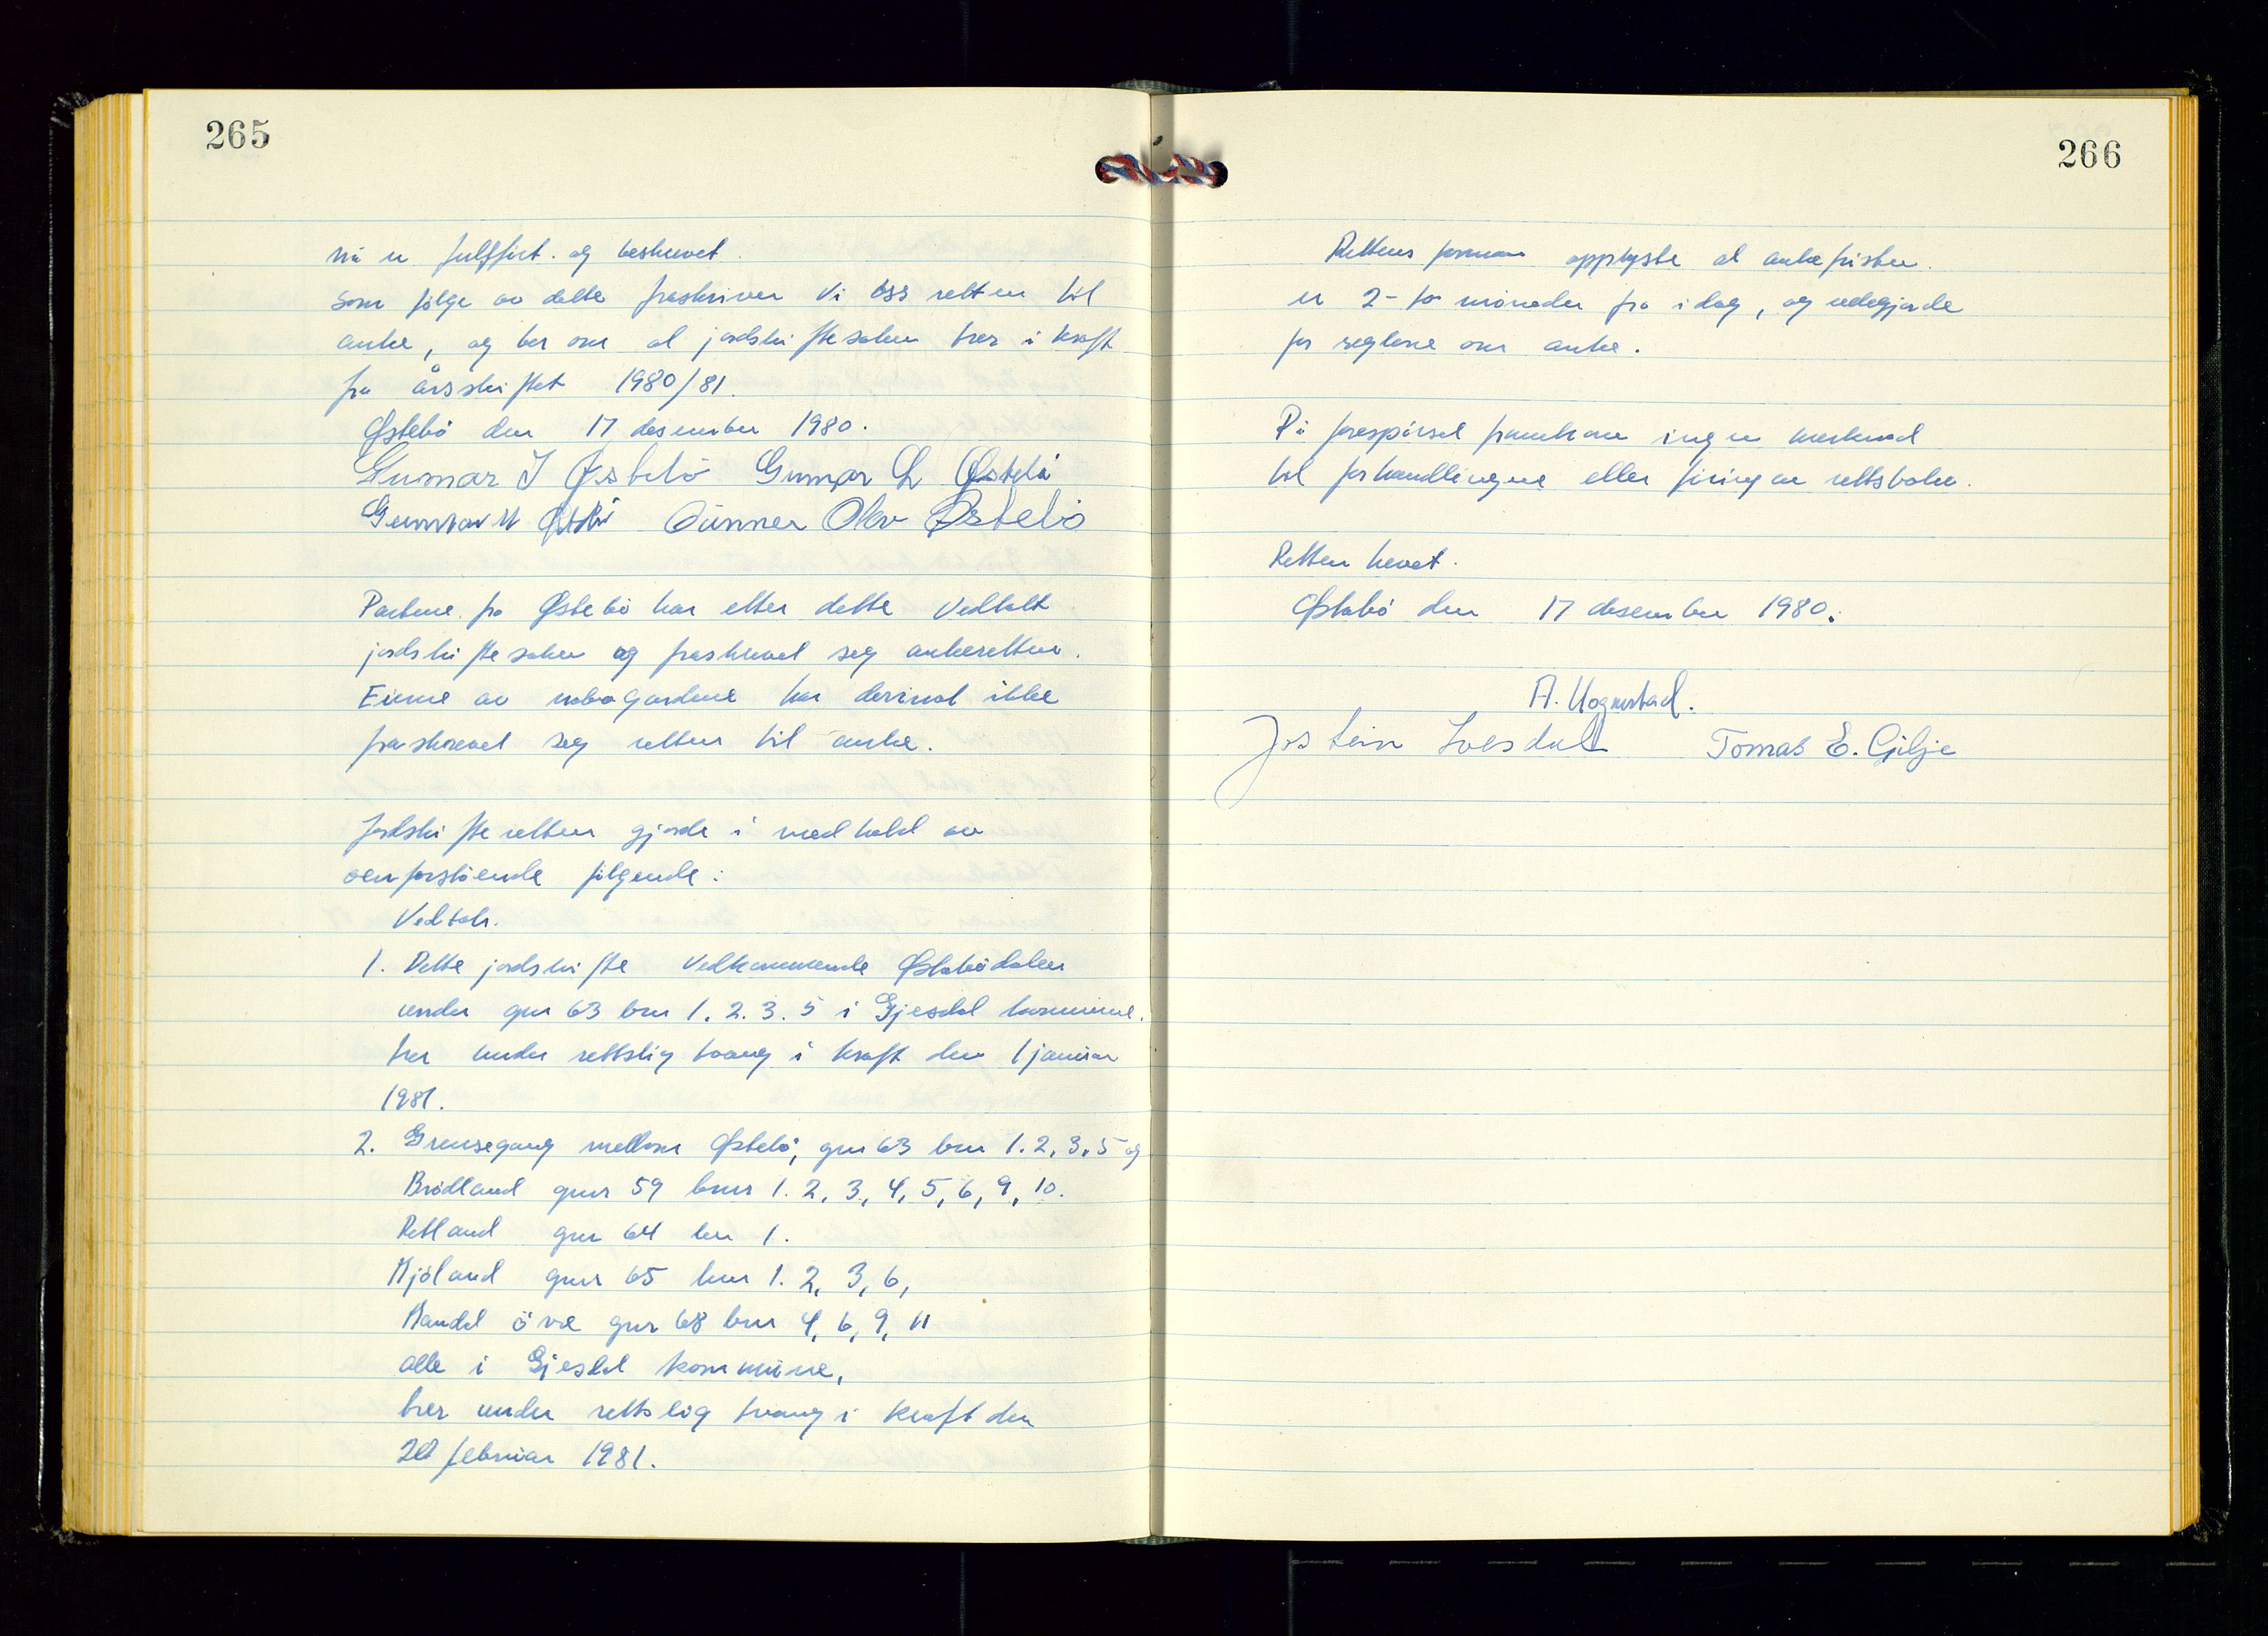 265
nå er fullført og beskrevet.
Som følge av dette fraskriver vi oss retten til
anke, og ber om at jordskiftesaken trer i kraft
fra årsskiftet 1980/81.
Østebø den 17 desember 1980.
Gunnar J Østebø Gunnar L Østebø
Gunnar M Østebø Gunnar Olav Østebø
Partene fra Østebø har etter dette vedtatt
jordskiftesaken og fraskrevet seg ankeretten.
Eierne av nabogardene har derimot ikke
fraskrevet seg retten til anke.
Jordskifteretten gjorde i medhold av
ovenforstående følgende:
Vedtak.
1. Dette jordskifte vedkommende Østabødalen
under gnr 63 bnr 1. 2. 3. 5 i Gjesdal kommune.
trer under rettslig tvang i kraft den 1 januar
1981.
2. Grensegang mellom Østebø, gnr 63 bnr 1. 2, 3, 5 og
Brådland gnr 59 bnr 1. 2, 3, 4, 5, 6, 9, 10.
Retland gnr 64 bnr 1.
Mjåland gnr 65 bnr 1. 2, 3, 6,
Maudal øvre gnr 68 bnr 4, 6, 9, 11
alle i Gjesdal kommune,
trer under rettslig tvang i kraft den
februar 1981.
266
Rettens formann opplyste at ankefristen
er 2 - to måneder fra i dag, og redegjorde
for reglene om anke.
På forespørsel framkom ingen merknad
til forhandlingene eller føring av rettsboken.
Retten hevet.
Østabø den 17 desember 1980.
A. Hognestad.
Jostein Loesdal Tomas E. Gilje